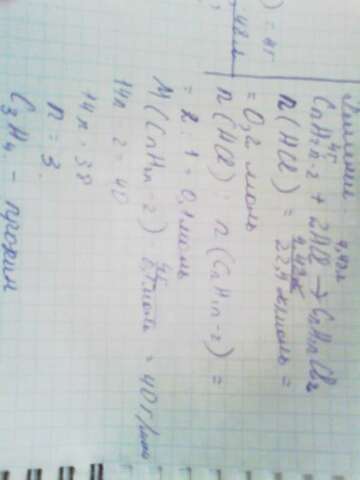 ) = 45
4,48 л
Решение
4г 4,48 л
CnH2n-2 + 2HCl → CnH2nCl2
n(HCl) = 4,48 л / 22,4 л/моль =
= 0,2 моль
n(HCl) : n(CnH2n-2) =
= 2 : 1 = 0,1 моль
M(CnH2n-2) = 4г / 0,1 моль = 40 г/моль
14n - 2 = 40
14n = 38
n = 3.
C3H4 - пропин